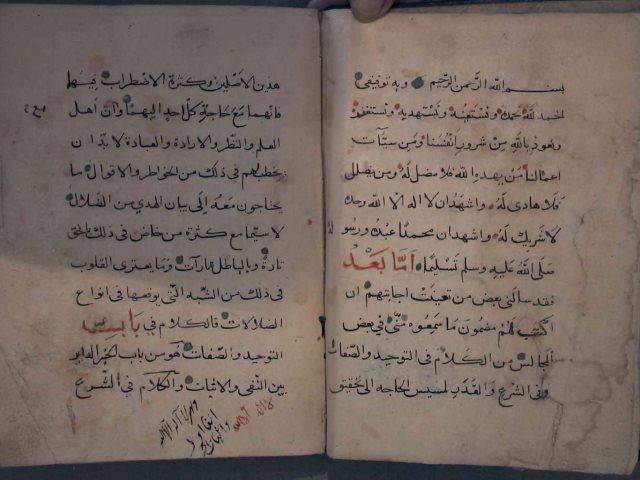 بسم الله الرحمن الرحيم وبه توفيقي
الحمد لله نحمده ونستعينه ونستهديه ونستغفره
ونعوذ بالله من شرور انفسنا ومن سيّآت
اعمالنا من يهد الله فلا مضل له ومن يضلل
فلا هادى له واشهد ان لا اله الا الله وحده
لا شريك له واشهد ان محمدا عبده ورسو له
صلى الله عليه وسلم تسليما اما بعد
فقد سالنى بعض من تعينت اجابتهم ان
اكتب لهم مضمون ما سمعوه منى فى بعض
المجالس من الكلام فى التوحيد والصفات
وفى الشرع والقدر لمسيس الحاجه الى تحقيق
هذين الاصلين وكثرة الاضطراب فيهما
فانهما مع حاجة كل احد اليهما وان اهل
العلم والنظر والارادة والعبادة لا بد ان
يخطر لهم فى ذلك من الخواطر والاقوال ما
يحتاجون معه إلى بيان الهدي من الضلال
لا سيما مع كثرة من خاض فى ذلك بالحق
تارة وبالباطل تارات وما يعترى القلوب
فى ذلك من الشبه التى يوقعها فى انواع
الضلالات فالكلام فى باب
التوحيد والصفات هو من باب الخبر الداير
بين النفى والاثبات والكلام فى الشرع